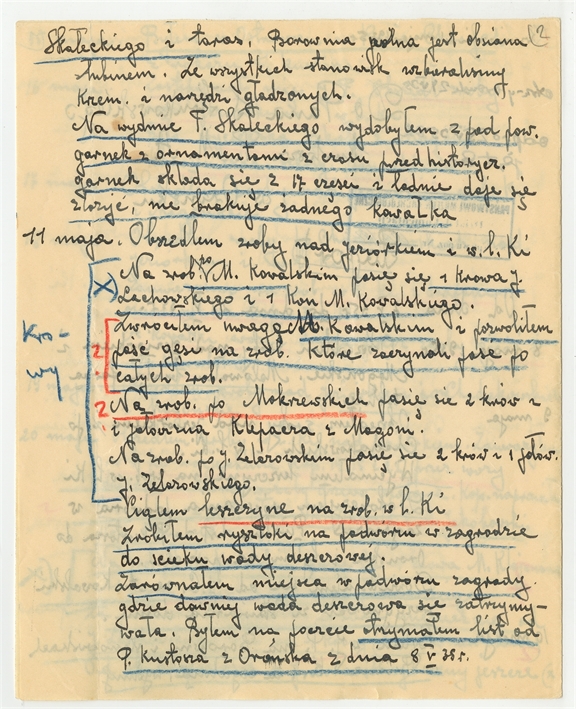 12
Skałeckiego i taras. Borownia polna jest obsiana
łubinem. Ze wszystkich stanowisk wzbieraliśmy
krzem. i narzędzi gładzonych.
Na wydmie F. Skałeckiego wydobyłem z pod pow.
garnek z ornamentami z czasu przedhistorycz.
garnek składa się z 17 części i ładnie daje się
złożyć, nie brakuje żadnego kawałka
11 maja. Obszedłem zroby nad jeziórkiem i w. l. Ki
Na zrob. po M. Kowalskim pasię się 1 krowa J.
Lachowskiego i 1 Koń M. Kowalskiego.
Zwróciłem uwagę M. Kowalskim i pozwoliłem
paść gęsi na zrob. Które zaczynali pasć po
całych zrob.
Na zrob. po Mokrzewskich pasie się 2 krów i
i jołowizna Klepacza z Magoni.
Na zrob. po J. Zelazowskim pasię się 2 krów i 1 jołow.
J. Zelazowskiego.
Ciąłem leszczynę na zrob. w l. Ki
Zrobiłem rysztoki na podwórzu w zagrodzie
do ścieku wody deszczowej.
Zarównałem miejsca w podwórzu zagrody
gdzie dawniej woda deszczowa się zatrzymy-
wała. Byłem na poczcie otrzymałem list od
P. Kustosza z Orońska z dnia 8 V 38 r.
X
Kro-
wy
?
?